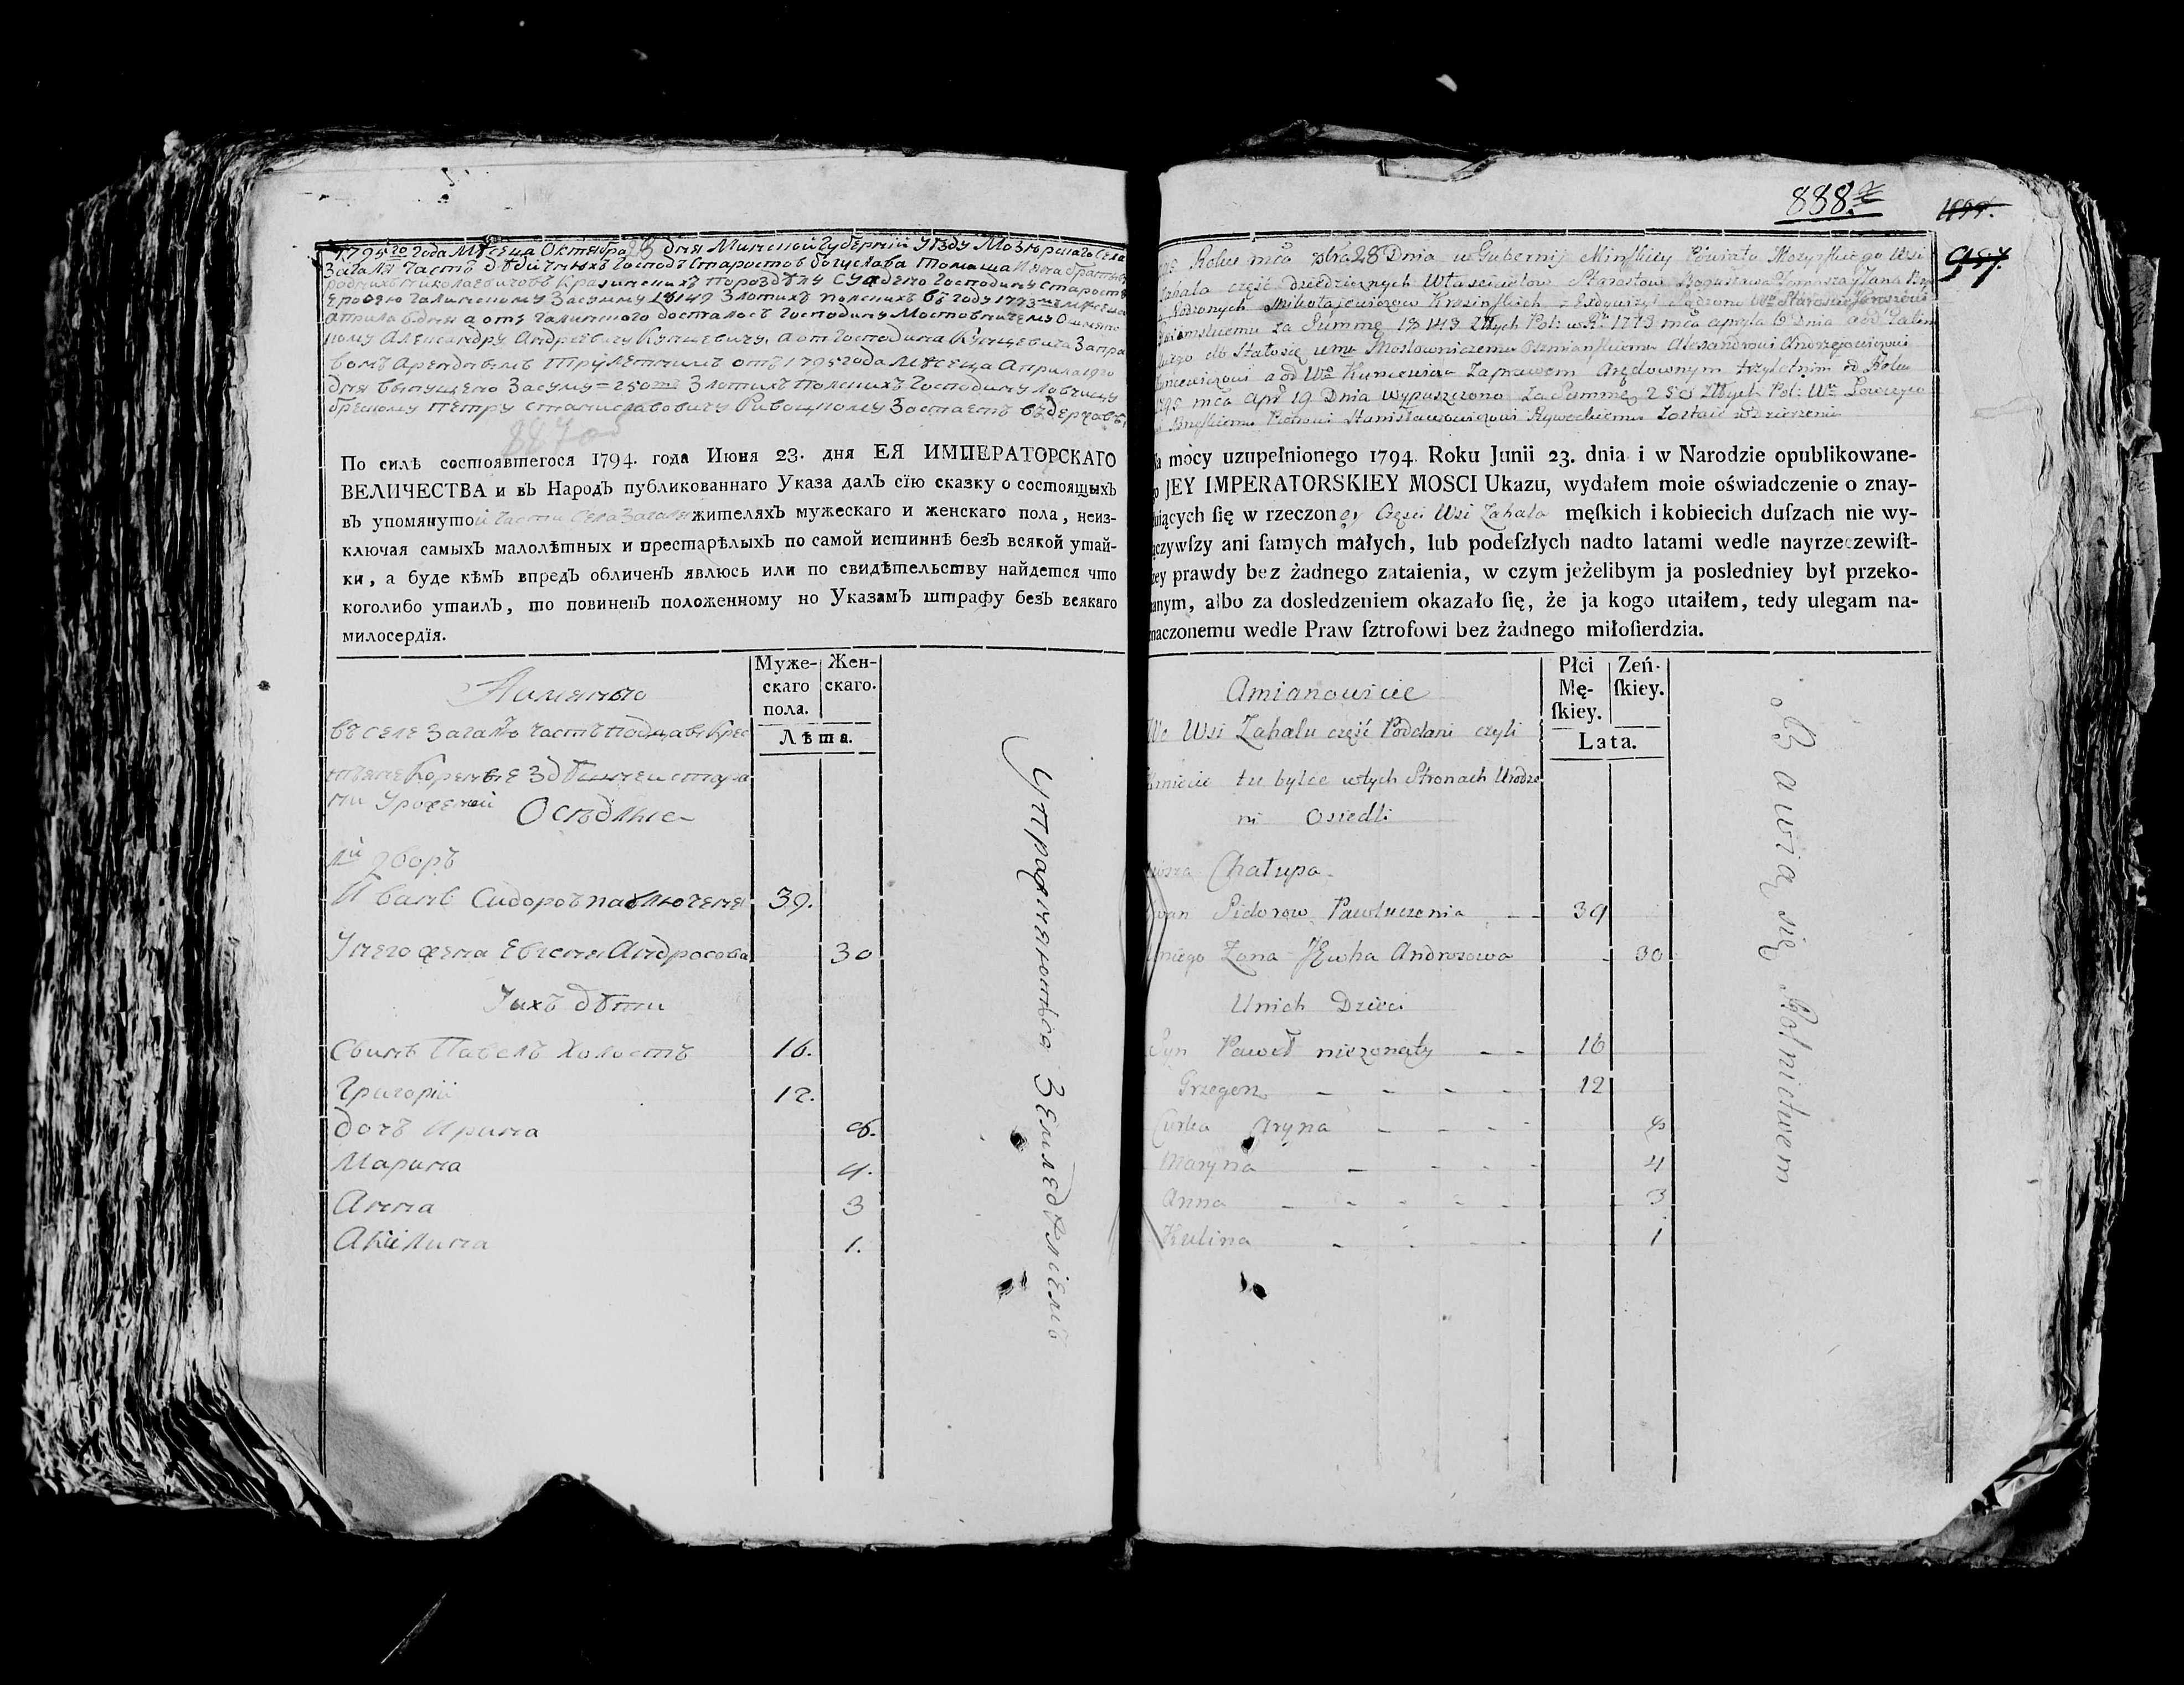 1795го года Мѣсеца Октября 28 дня Минской Губерніи Уѣзду Мозырскаго Села
Загаля часть дѣдичныхъ Господъ Старостов богуслава Томаша Ияна братьевъ
родныхъ Николаевичовъ Красинскихъ Пороздѣлу Суждено Господину Старостѣ
Галинскому Засумму 18149 Злотихъ полскихъ въ году 1773мъ Мѣсеца
Априла 6 дня а отъ Галинского досталось Господину Мостовничему Ошмянс
кому Александру Андреевичу Кунцевичу, а от Господина Кунцевича Запра
вомъ Арендннымъ Трулетнимъ отъ 1795 года Мѣсеца Априла 19го
дня выпущено Засуму = 250 Злотихъ Полскихъ Господину Ловчицу
брескому Петру Станиславовичу Зостаетъ въ держав
По силѣ состоявшегося 1794. года Июня 23. дня ЕЯ ИМПЕРАТОРСКАГО
ВЕЛИЧЕСТВА и въ Народъ публикованнаго Указа далъ сїю сказку о состоящыхъ
въ упомянутой части Села Загаля жителяхъ мужескаго и женскаго пола, неиз-
ключая самыхъ малолѣтныхъ и престарѣлыхъ по самой истиннѣ безъ всякой утай-
ки, а буде кѣмъ впредъ обличенъ явлюсь или по свидѣтельству найдется что
коголибо утаилъ, то повиненъ положенному но Указамъ штрафу безъ всякаго
милосердїя.
Муже-
скаго
пола.
Жен-
скаго.
Лѣта.
Аимянно
въ селе Загалѣ часть
Осѣдлие
1й Дворъ
Иванъ Сидоровъ Павлюченя 39.
Унего жена Евгеня Андросова 30
Уихъ дѣти
Сынъ Павелъ Холостъ 16.
Григорій 12.
дочъ Ирина 8.
Марина 4.
Анна 3
Акилина 1.
Упражняются Земледѣліемъ
888.
987.
Roku mca 8bra 28 Dnia w Gubernij Minskiey Powiatu Mozyrskiego Wsi
Zahala część dziedzicznych Właścicielow Starostow Bogusława Tomasza Jana
Rodzonych Mikołajewiczow Krasinskich
za Summę 18149 Złłych Pol: w R. 1773 mca apryla 6 Dnia a od Galin
Mostowniczemu Oszmianskiemu Alexandrowi Andrzejewiczowi
Kuncewiczowi a od Wo Kuncewicza Zaprawem Arędownym trzyletnim od Roku
mca Apr 19 Dnia wypuszczono Za Summę 250 Złłych Pol: Wo Łowczyco
Piotrowi Stanisławowiczowi
mocy uzupełnionego 1794. Roku Junii 23. dnia i w Narodzie opublikowane-
go JEY IMPERATORSKIEY MOSCI Ukazu, wydałem moie oświadczenie o znay-
duiących ſię w rzeczoney Części Wsi Zahala męſkich i kobiecich duſzach nie wy-
ączywſzy ani ſamych małych, lub podeſzłych nadto latami wedle nayrzeczewiſt-
zey prawdy bez żadnego zataienia, w czym jeżelibym ja posledniey był przeko-
anym, albo za dosledzeniem okazało ſię, że ja kogo utaiłem, tedy ulegam na-
znaczonemu wedle Praw ſztrofowi bez żadnego miłoſierdzia.
Płci
Mę-
ſkiey.
Zeń-
ſkiey.
Lata.
Amianowicie
We Wsi Zahalu część Poddani czyli
Kmiecie tu bylce wtych Stronach Urodzo
ni Osiedli
Chałupa
Iwan Sidorow Pawluczenia 39
Uniego Zona JEwha Androsowa 30
Unich Dzieci
Syn Paweł niezonaty 16
Grzegorz 12
Curka Aryna 8
Maryna 4
Anna 3
Kulina 1
Bawią się Rolnictwem